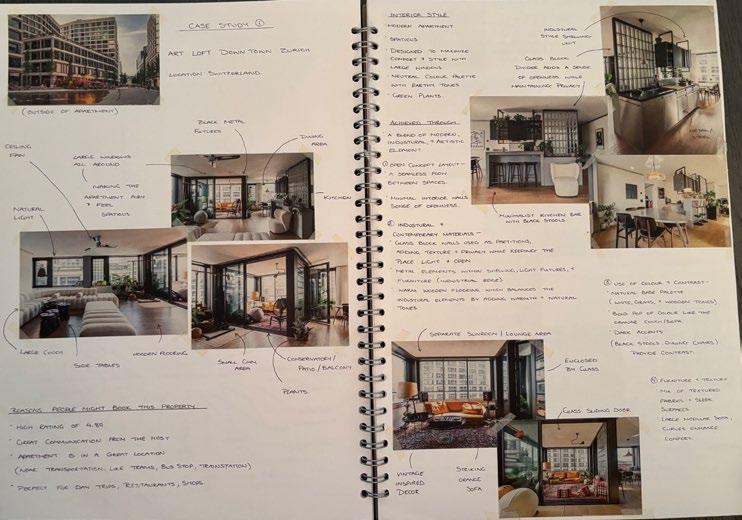 CASE STUDY ①
ART LOFT DOWNTOWN ZURICH
LOCATION SWITZERLAND.
(OUTSIDE OF APARTMENT)
BLACK METAL
FIXTURES
DINNING
AREA
CEILING
FAN
LARGE WINDOWS
ALL AROUND
MAKING THE
APARTMENT AIRY
& FEEL
SPATIOUS
NATURAL
LIGHT
KITCHEN
LARGE COUCH
SIDE TABLES
WOODEN FLOORING
SMALL COFFEE
AREA
CONSERVATORY/
PATIO/BALCONY
PLANTS
REASONS PEOPLE MIGHT BOOK THIS PROPERTY
- HIGH RATING OF 4.84
- GREAT COMMUNICATION FROM THE HOST
- APARTMENT IS IN A GREAT LOCATION
(NEAR TRANSPORTATION, LIKE TRAMS, BUS STOP, TRAINSTATION)
- PERFECT FOR DAY TRIPS, RESTAURANTS, SHOPS
INTERIOR STYLE
MODERN APARTMENT
SPATIOUS
- DESIGNED TO MAXIMIZE
COMFORT & STYLE WITH
LARGE WINDOWS
- NEUTRAL COLOUR PALETTE
WITH EARTHY TONES
- GREEN PLANTS.
INDUSTRIAL
STYLE SHELVING
UNIT
GLASS BLOCK
DIVIDER ADDS A SENSE
OF OPENNESS WHILE
MAINTAINING PRIVACY
ACHIEVED THROUGH
A BLEND OF MODERN,
INDUSTRIAL, & ARTISTIC
ELEMENT
① OPEN CONCEPT LAYOUT -
A SEAMLESS FLOW
BETWEEN SPACES.
- MINIMAL INTERIOR WALLS
SENSE OF OPENNESS.
MINIMALIST KITCHEN BAR
WITH BLACK STOOLS
② INDUSTRIAL &
CONTEMPORARY MATERIALS -
- GLASS BLOCK WALLS USED AS PARTITIONS,
ADDING TEXTURE & PRIVACY WHILE KEEPING THE
PLACE LIGHT & OPEN
- METAL ELEMENTS WITHIN SHELVING, LIGHT FIXTURES, &
FURNITURE (INDUSTRIAL EDGE)
- WARM WOODEN FLOORING WHICH BALANCES THE
INDUSTRIAL ELEMENTS BY ADDING WARMTH & NATURAL
TONES
③ USE OF COLOUR & CONTRAST-
- NATURAL BASE PALETTE
(WHITE, GRAYS, & WOODEN TONES)
BOLD POP OF COLOUR LIKE THE
ORANGE COUCH/SOFA
- DARK ACCENTS
(BLACK STOOLS, DINING CHAIRS)
PROVIDE CONTRAST.
SEPARATE SUNROOM / LOUNGE AREA
ENCLOSED
BY GLASS
GLASS SLIDING DOOR
④ FURNITURE & TEXTURE
MIX OF TEXTURED
FABRICS & SLEEK
SURFACES
- LARGE MODULAR SOFA,
CURVES ENHANCE
COMFORT.
VINTAGE
INSPIRED
DECOR
STRIKING
ORANGE
SOFA